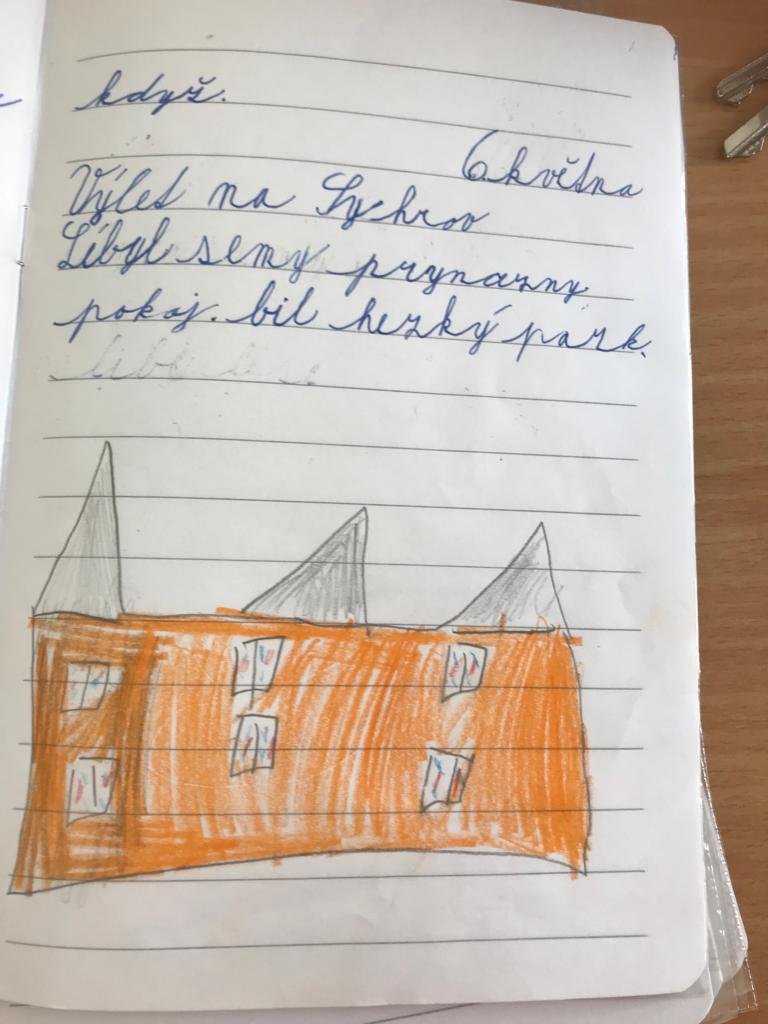 když.
6. května
Výlet na Sychrov
Líbyl semy prynazny
pokoj. bil hezký park.